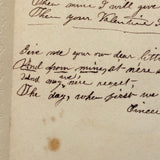 mine I will give
Then your Valentine I
Give me your own dear litt
And from mine, at mere
And may we ne'er regret,
The day, when first we
Since